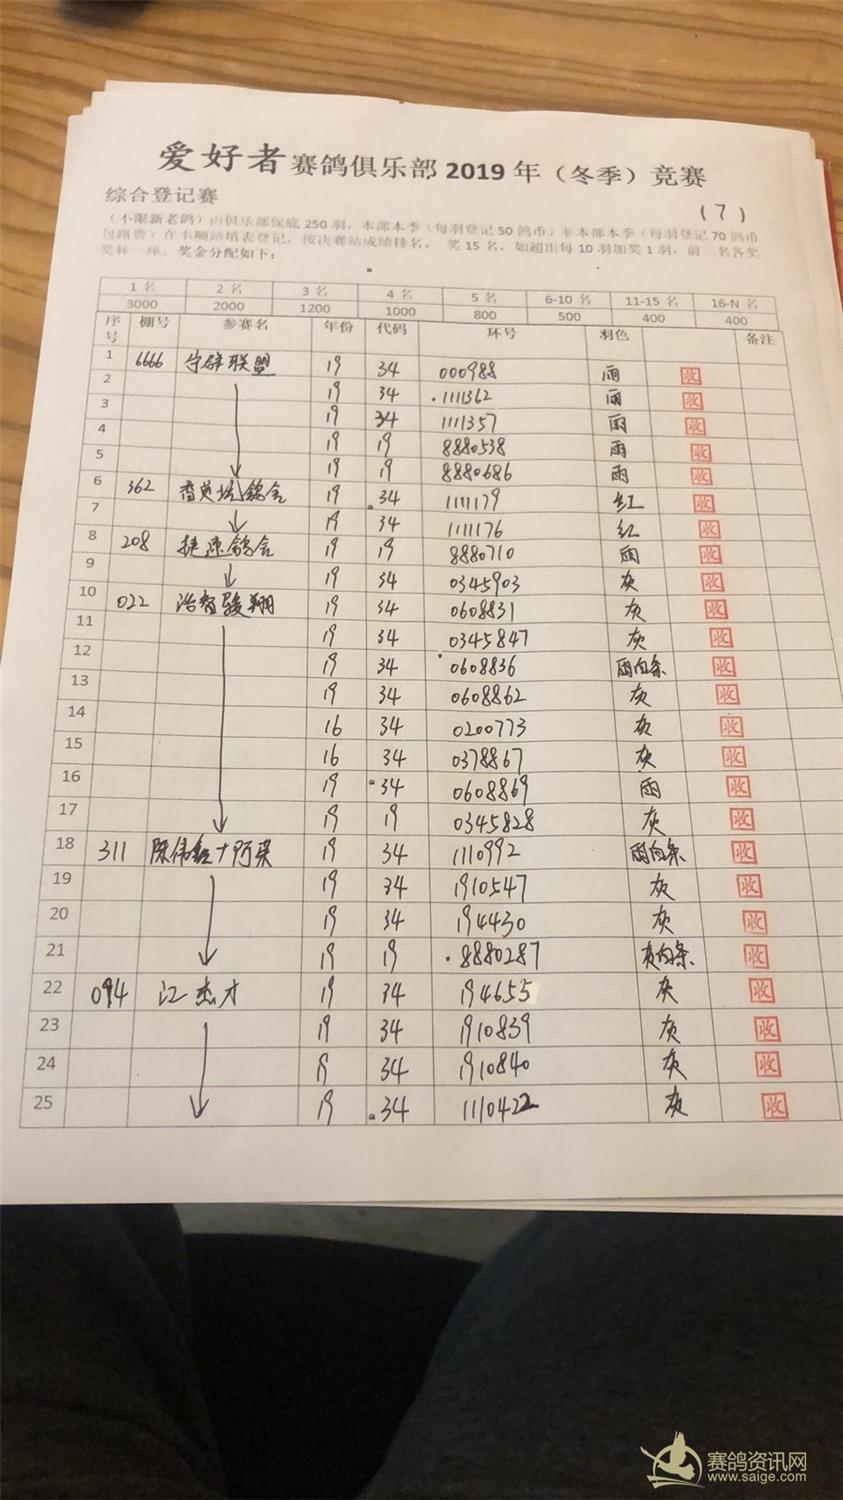 爱好者赛鸽俱乐部2019年（冬季）竞赛
综合登记赛
(7)
（不限新老鸽）由俱乐部保底250羽，本部本季（每羽登记50鸽币）非本部本季（每羽登记70鸽币
包路费）在丰顺站填表登记，按决赛站成绩排名， 奖15名，如超出每10羽加奖1羽，前三名各奖
奖杯一座。奖金分配如下：
1名 2名 3名 4名 5名 6-10名 11-15名 16-N名
3000 2000 1200 1000 800 500 400 400
序号 棚号 参赛名 年份 代码 环号 羽色 备注
1 6666 联盟 19 34 000988 雨 收
2 19 34 1111362 雨 收
3 19 34 1111357 雨 收
4 19 19 8880538 雨 收
5 19 19 8880686 雨 收
6 362 鸽舍 19 34 1111179 红 收
7 19 34 1111176 红 收
8 208 捷速鸽舍 19 19 8880710 雨 收
9 19 34 0345903 灰 收
10 022 浩智骏翔 19 34 0608831 灰 收
11 19 34 0345847 灰 收
12 19 34 0608836 雨白条 收
13 19 34 0608862 灰 收
14 16 34 0200773 灰 收
15 16 34 0378867 灰 收
16 19 34 0608869 雨 收
17 19 19 0345828 灰 收
18 311 陈伟 19 34 1110992 雨白条 收
19 19 34 1910547 灰 收
20 19 34 194430 灰 收
21 19 19 8880287 灰白条 收
22 094 江杰才 19 34 194655 灰 收
23 19 34 1910839 灰 收
24 19 34 1910840 灰 收
25 19 34 1110422 灰 收
赛鸽资讯网
www.saige.com